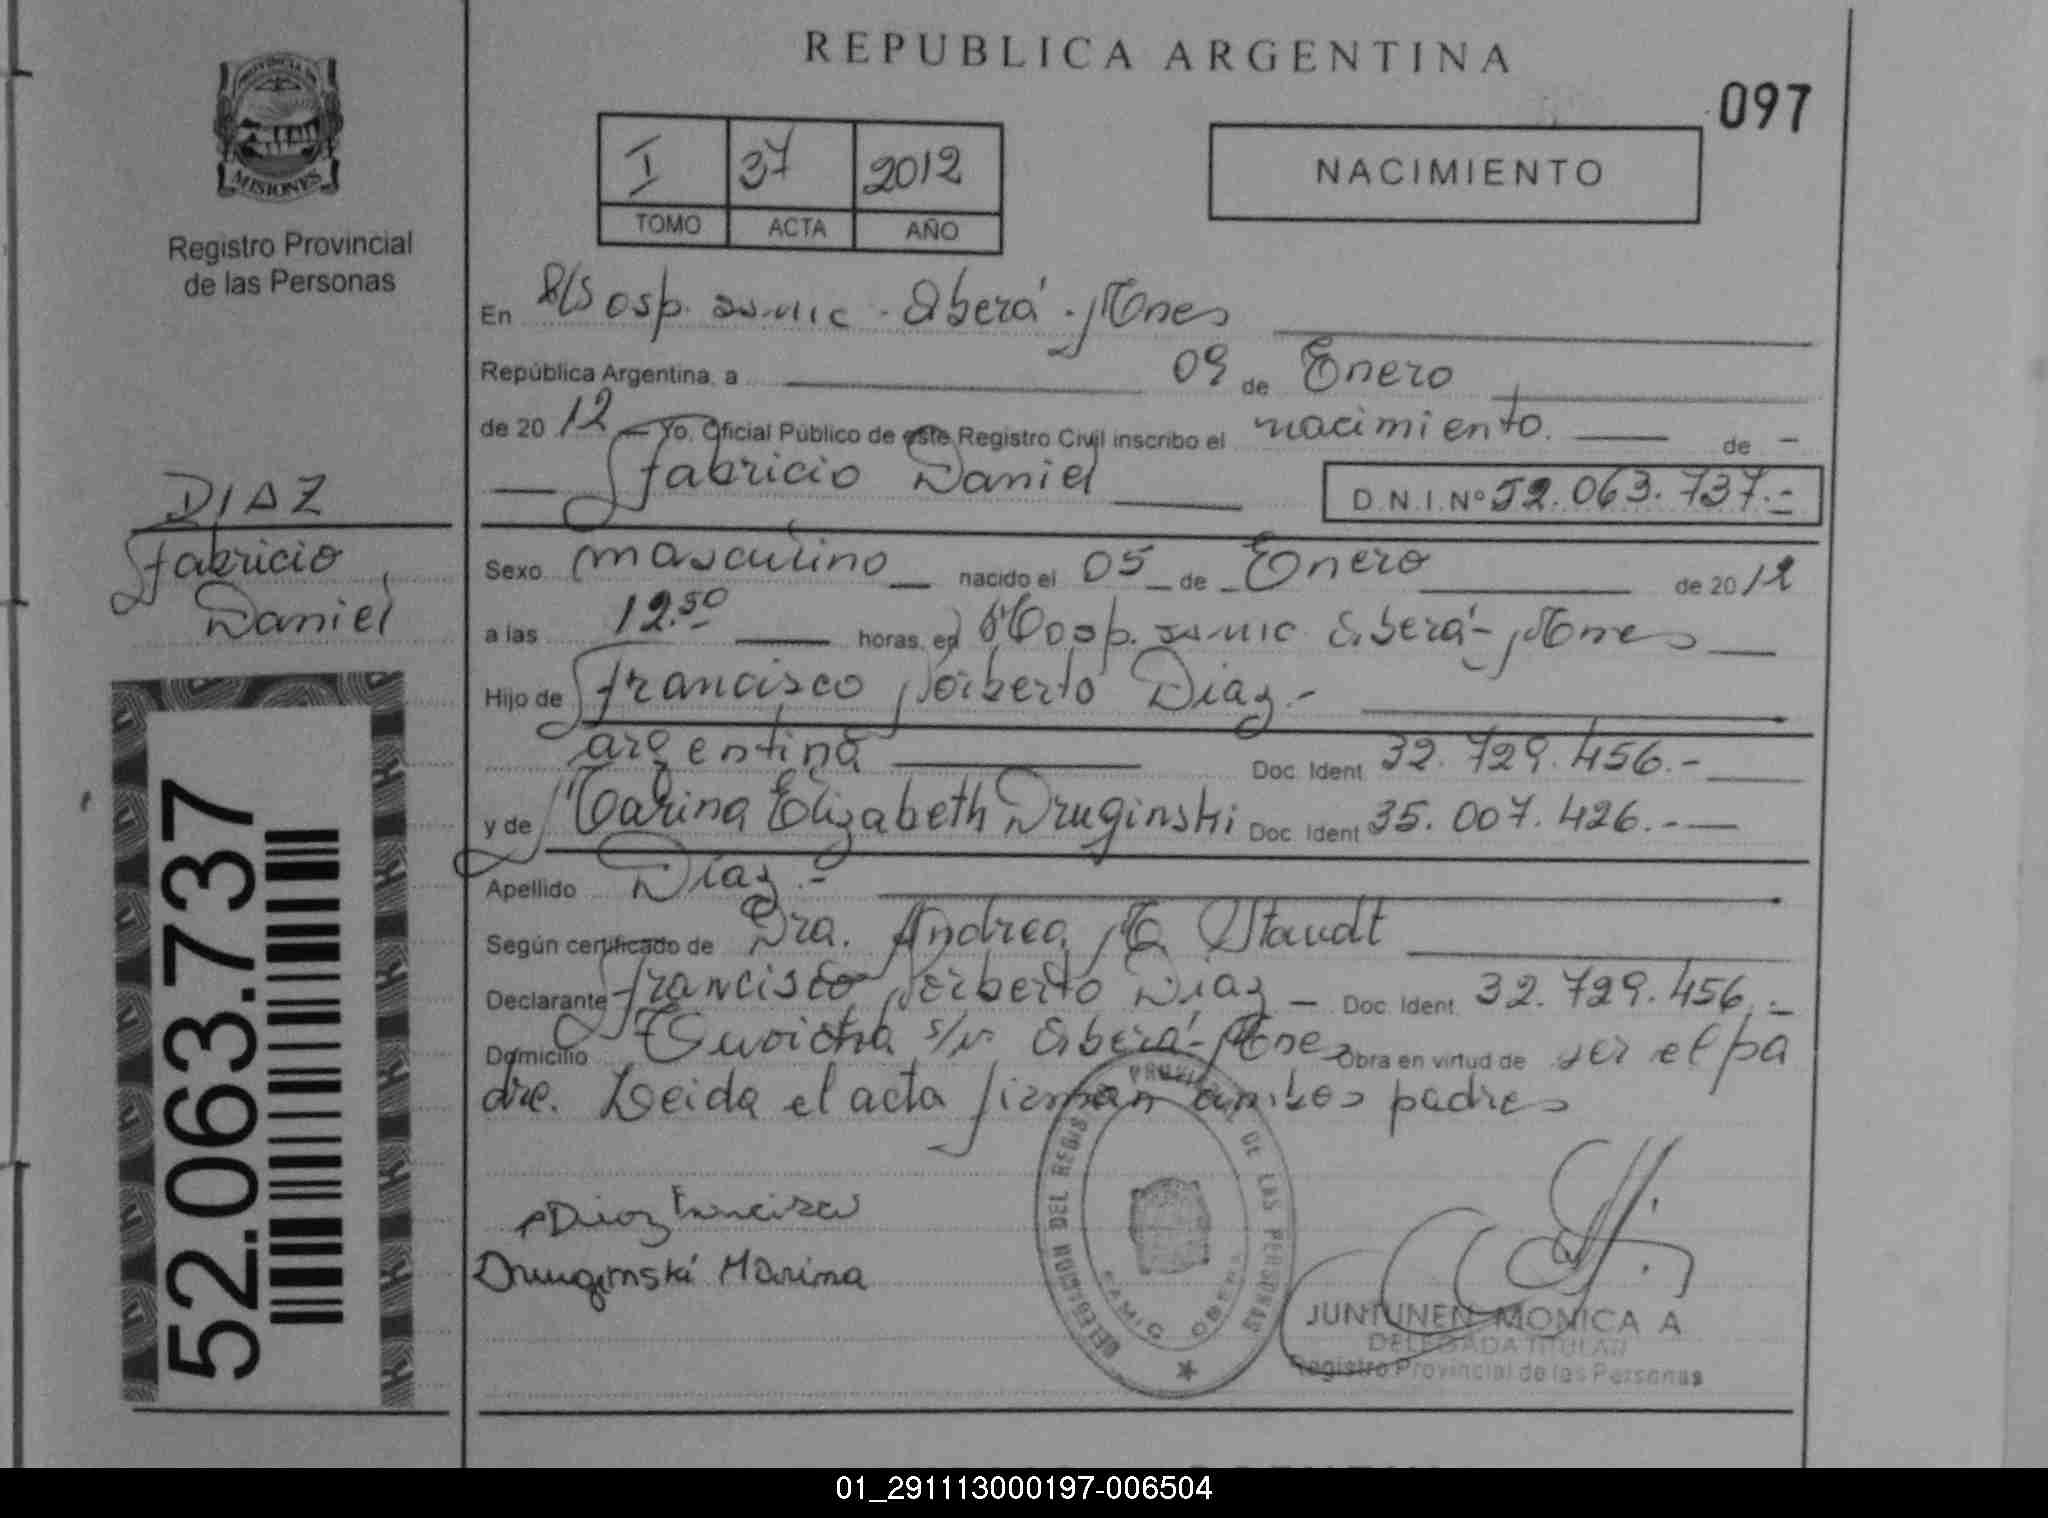 REPUBLICA ARGENTINA
097
PROVINCIA DE
MISIONES
Registro Provincial
de las Personas
I 37 2012
TOMO ACTA AÑO
NACIMIENTO
En Hosp. Oberá - Mnes
República Argentina, a 09 de Enero
de 20 12 Yo, Oficial Público de este Registro Civil inscribo el nacimiento. de
Fabricio Daniel
D.N.I. Nº 52.063.737.-
DIAZ
Fabricio
Daniel
Sexo masculino nacido el 05 de Enero de 2012
a las 12.50 horas, en Hosp. Oberá - Mnes
Hijo de Francisco Norberto Diaz.-
argentina Doc. Ident. 32.729.456.-
y de Marina Elizabeth Druginski Doc. Ident. 35.007.426.-
Apellido Diaz.-
Según certificado de Dra. Andrea M. Staudt
Declarante Francisco Norberto Diaz - Doc. Ident. 32.729.456.-
Domicilio s/n Oberá - Mnes Obra en virtud de ser el pa
dre. Leida el acta firman ambos padres
Diaz Francisco
Druginski Marina
52.063.737
DELEGACION DEL REGISTRO PROVINCIAL DE LAS PERSONAS
SAMIC OBERA
JUNTUNEN MONICA A
DELEGADA TITULAR
Registro Provincial de las Personas
01_291113000197-006504